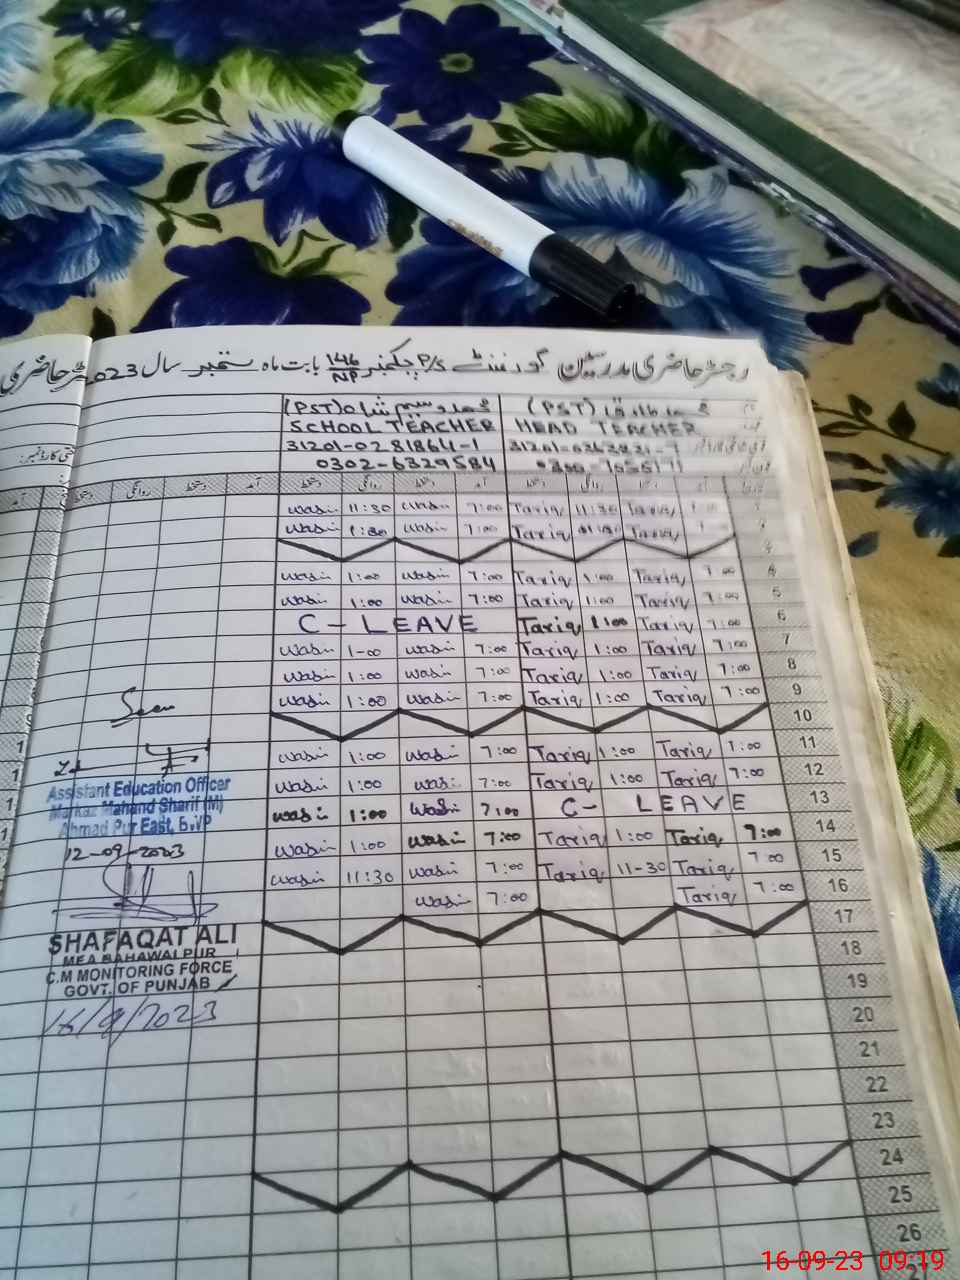 رجسٹر حاضری مدرسین گورنمنٹ P/S چک نمبر 146/NP بابت ماہ ستمبر سال 2023
محمد وسیم شاہ (PST) محمد طارق (PST)
SCHOOL TEACHER HEAD TEACHER
31201-0281864-1
0302-6329584
دستخط روانگی دستخط آمد دستخط روانگی دستخط
Wasim 11:30 Wasim 7:00 Tariq 11:30 Tariq
Wasim 7:00 Tariq Tariq
Wasim 1:00 Wasim 7:00 Tariq 1:00 Tariq 7:00 4
Wasim 1:00 Wasim 7:00 Tariq 1:00 Tariq 7:00 5
C - LEAVE Tariq 1:00 Tariq 7:00 6
Wasim 1-00 Wasim 7:00 Tariq 1:00 Tariq 7:00 7
Wasim 1:00 Wasim 7:00 Tariq 1:00 Tariq 7:00 8
Wasim 1:00 Wasim 7:00 Tariq 1:00 Tariq 7:00 9
10
Wasim 1:00 Wasim 7:00 Tariq 1:00 Tariq 7:00 11
Wasim 1:00 Wasim 7:00 Tariq 1:00 Tariq 7:00 12
Wasim 1:00 Wasim 7:00 C - LEAVE 13
Wasim 1:00 Wasim 7:00 Tariq 1:00 Tariq 7:00 14
Wasim 11:30 Wasim 7:00 Tariq 11-30 Tariq 7:00 15
Wasim 7:00 Tariq 7:00 16
17
18
19
20
21
22
23
24
25
26
Seen
Assistant Education Officer
Markaz Mahand Sharif (M)
Ahmad Pur East, B.VP
12-09-2023
SHAFAQAT ALI
MEA BAHAWALPUR
C.M MONITORING FORCE
GOVT. OF PUNJAB
16/9/2023
16-09-23 09:19